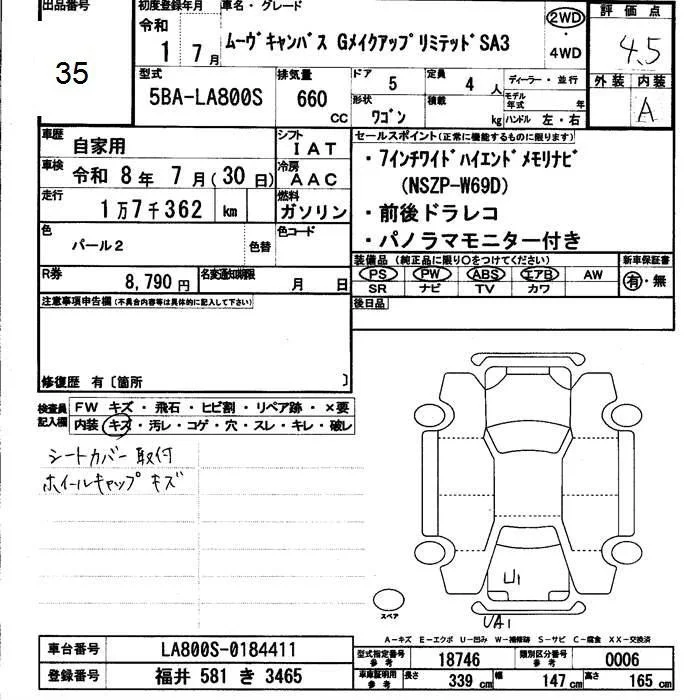 出品番号
35
初度登録年月
令和
1年7月
車名・グレード
ムーヴキャンバス GメイクアップリミテッドSA3
2WD
・
4WD
評価点
4.5
外装 内装
A
型式
5BA-LA800S
排気量
660
CC
ドア 5
形状 ワゴン
定員 4 人
積載 kg
ディーラー・並行
モデル年式 年
ハンドル 左・右
車歴 自家用
車検 令和 8年 7月(30日)
走行 1万7千362 km
色 パール2 色替
シフト IAT
冷房 AAC
燃料 ガソリン
色コード
R券 8,790円
名変通知期限 月 日
セールスポイント(正常に機能するものに限ります)
・7インチワイドハイエンドメモリナビ
(NSZP-W69D)
・前後ドラレコ
・パノラマモニター付き
装備品(純正品に限り○をつけてください)
PS PW ABS エアB AW
SR ナビ TV カワ
新車保証書
有・無
後日品
注意事項申告欄(不具合内容等は具体的に記入して下さい)
修復歴 有〔箇所 〕
検査員記入欄
FW キズ・飛石・ヒビ割・リペア跡・×要
内装 キズ・汚レ・コゲ・穴・スレ・キレ・破レ
シートカバー取付
ホイールキャップキズ
U1
UA1
スペア
A-キズ E-エクボ U-凹み W-補修跡 S-サビ C-腐食 XX-交換済
車台番号 LA800S-0184411
登録番号 福井 581 き 3465
型式指定番号 参考 18746
類別区分番号 参考 0006
車庫証明用 参考 長さ 339 cm 幅 147 cm 高さ 165 cm